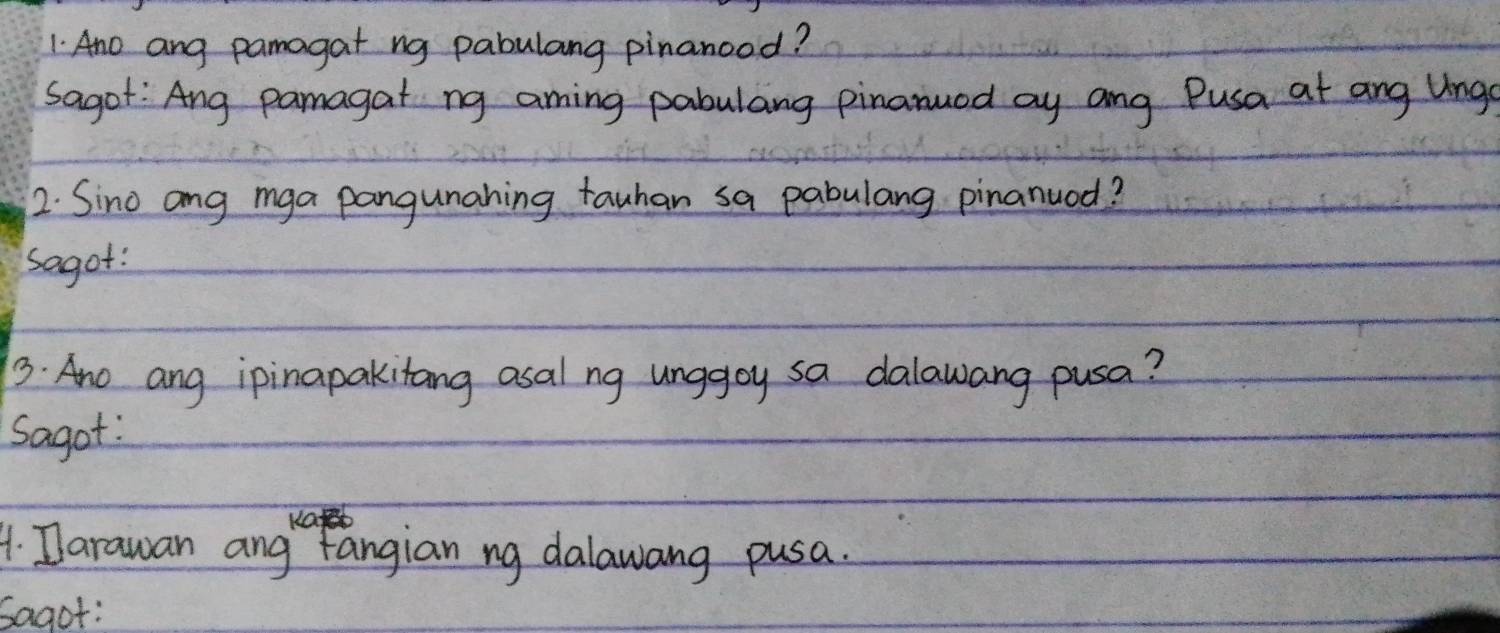 1. Ano ang pamagat ng pabulang pinanood?
Sagot: Ang pamagat ng aming pabulang pinanuod ay ang Pusa at ang Ungg
2. Sino ang mga pangunahing tauhan sa pabulang pinanuod?
Sagot:
3. Ano ang ipinapakitang asal ng unggoy sa dalawang pusa?
Sagot:
4. Ilarawan ang katangian ng dalawang pusa.
Sagot: